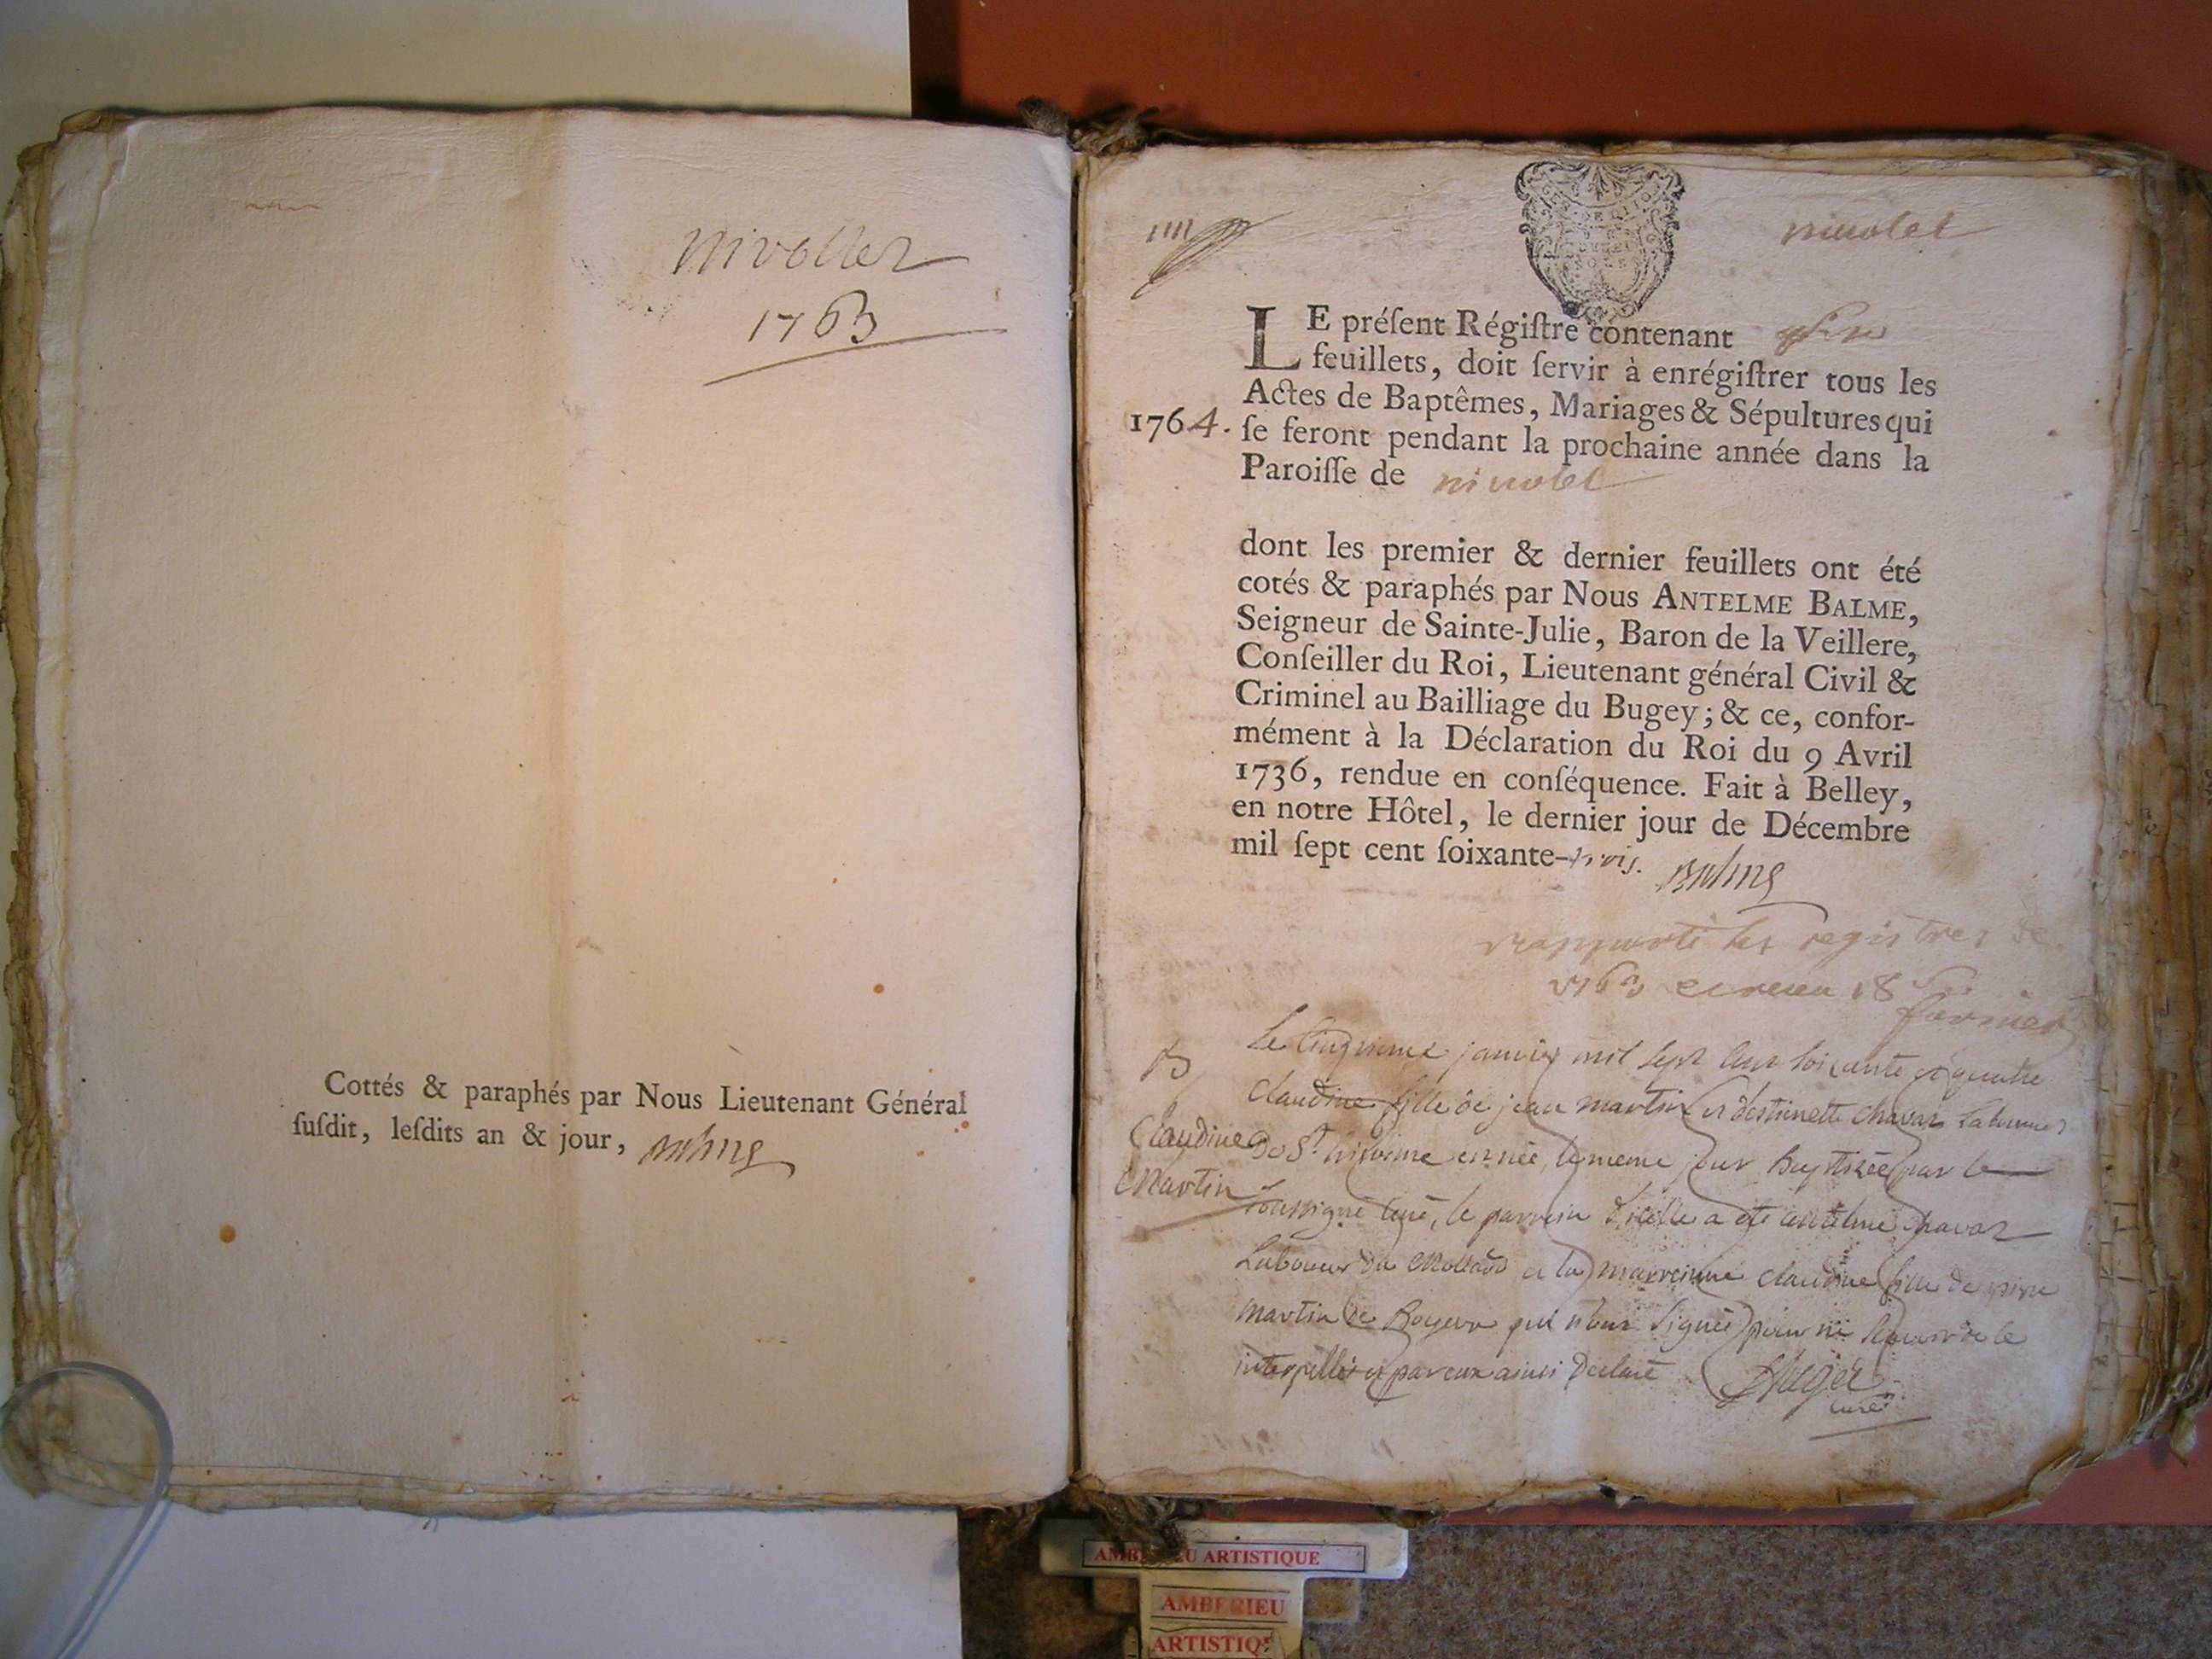 Nivollet
1763
Cottés & paraphés par Nous Lieutenant Général
ſuſdit, leſdits an & jour, Balme
nivolet
LE préſent Régiſtre contenant
feuillets, doit ſervir à enrégiſtrer tous les
Actes de Baptêmes, Mariages & Sépultures qui
1764. ſe feront pendant la prochaine année dans la
Paroiſſe de nivolet
dont les premier & dernier feuillets ont été
cotés & paraphés par Nous ANTELME BALME,
Seigneur de Sainte-Julie, Baron de la Veillere,
Conſeiller du Roi, Lieutenant général Civil &
Criminel au Bailliage du Bugey; & ce, confor-
mément à la Déclaration du Roi du 9 Avril
1736, rendue en conſéquence. Fait à Belley,
en notre Hôtel, le dernier jour de Décembre
mil ſept cent ſoixante-trois. Balme
rapporté les registres de
1763 et receu 18 s
B
Claudine
Martin
Le cinquieme janvier mil sept cent soixante et quatre
claudine fille de jean martin et chavas
De St. est née, le meme jour Baptizée par le
soussigné curé, le parrein d'icelle a été antelme chavas
Laboureur du Mollard et la marreinne claudine fille de
martin de qui n'ont signé pour ne sçavoir de ce
interpellés et par eux ainsi declaré
curé
AMBERIEU ARTISTIQUE
AMBERIEU
ARTISTIQ